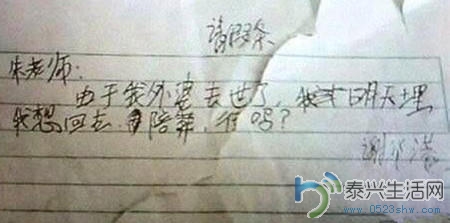 请假条
朱老师:
由于我外婆去世了,我 明天埋
我想回去 陪葬,行吗?
谢
泰兴生活网
www.0523shw.com